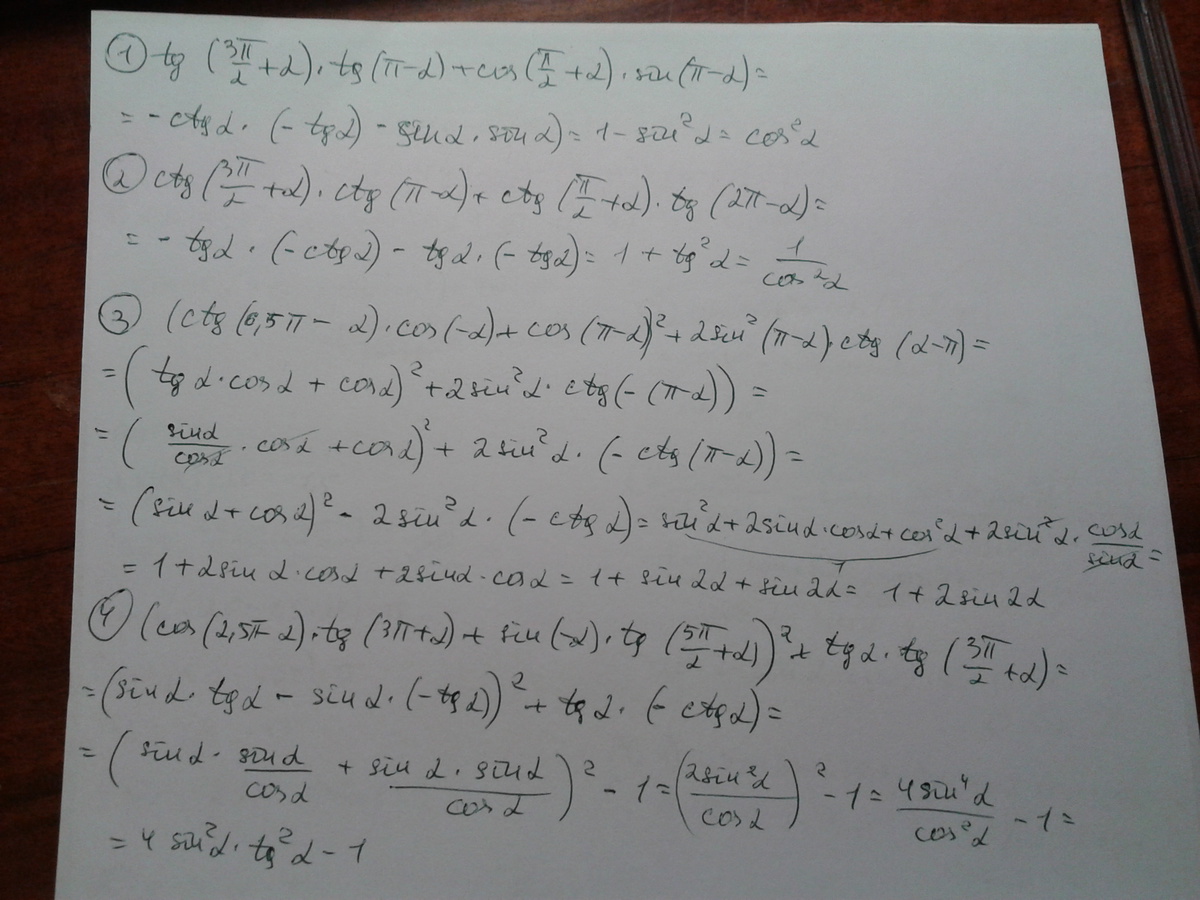 ① tg (3π/2 + α) · tg (π - α) + cos (π/2 + α) · sin (π - α) =
= - ctg α · (- tg α) - sin α · sin α) = 1 - sin² α = cos² α
② ctg (3π/2 + α) · ctg (π - α) + ctg (π/2 + α) · tg (2π - α) =
= - tg α · (- ctg α) - tg α · (- tg α) = 1 + tg² α = 1/cos² α
③ (ctg (6,5π - α) · cos (-α) + cos (π - α)² + 2 sin² (π - α) · ctg (α - π) =
= (tg α · cos α + cos α)² + 2 sin² α · ctg (- (π - α)) =
= (sin α/cos α · cos α + cos α)² + 2 sin² α · (- ctg (π - α)) =
= (sin α + cos α)² - 2 sin² α · (- ctg α) = sin² α + 2 sin α · cos α + cos² α + 2 sin² α · cos α/sin α =
= 1 + 2 sin α · cos α + 2 sin α · cos α = 1 + sin 2α + sin 2α = 1 + 2 sin 2α
④ (cos (2,5π - α) · tg (3π + α) + sin (-α) · tg (5π/2 + α))² + tg α · tg (3π/2 + α) =
= (sin α · tg α - sin α · (- tg α))² + tg α · (- ctg α) =
= (sin α · sin α/cos α + sin α · sin α/cos α)² - 1 = (2 sin² α/cos α)² - 1 = 4 sin⁴ α/cos² α - 1 =
= 4 sin² α · tg² α - 1